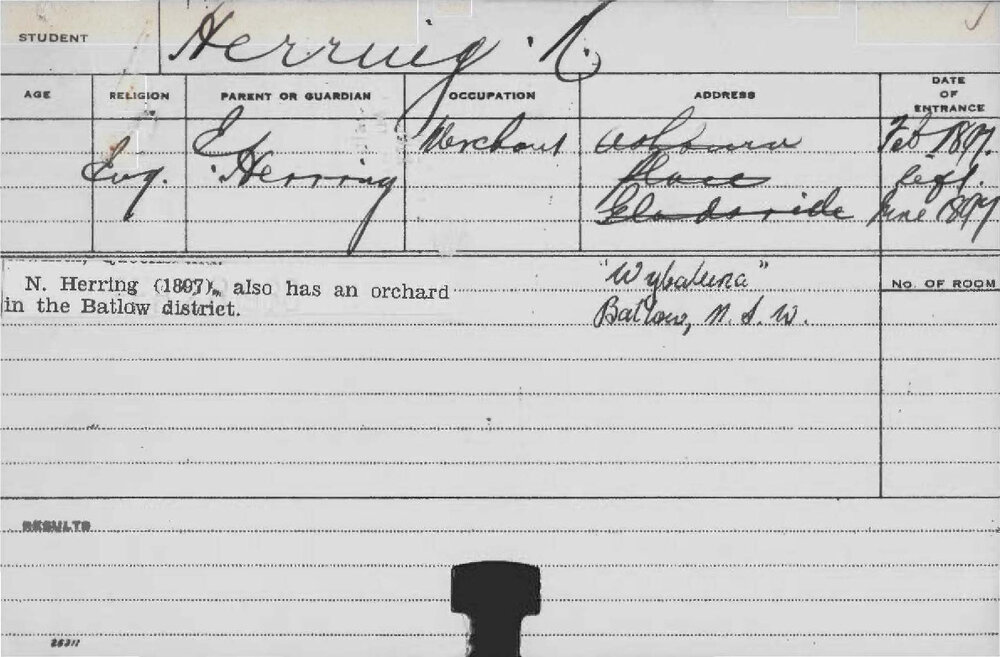 STUDENT Herring. N.
AGE RELIGION PARENT OR GUARDIAN OCCUPATION ADDRESS DATE OF ENTRANCE
E Merchant Ashburn Feb 1897.
Eng. Herring Place left.
Gladsville June 1897
"Wybalena"
N. Herring (1897), also has an orchard
in the Batlow district.
Batlow, N. S. W.
No. OF ROOM
RESULTS
26311